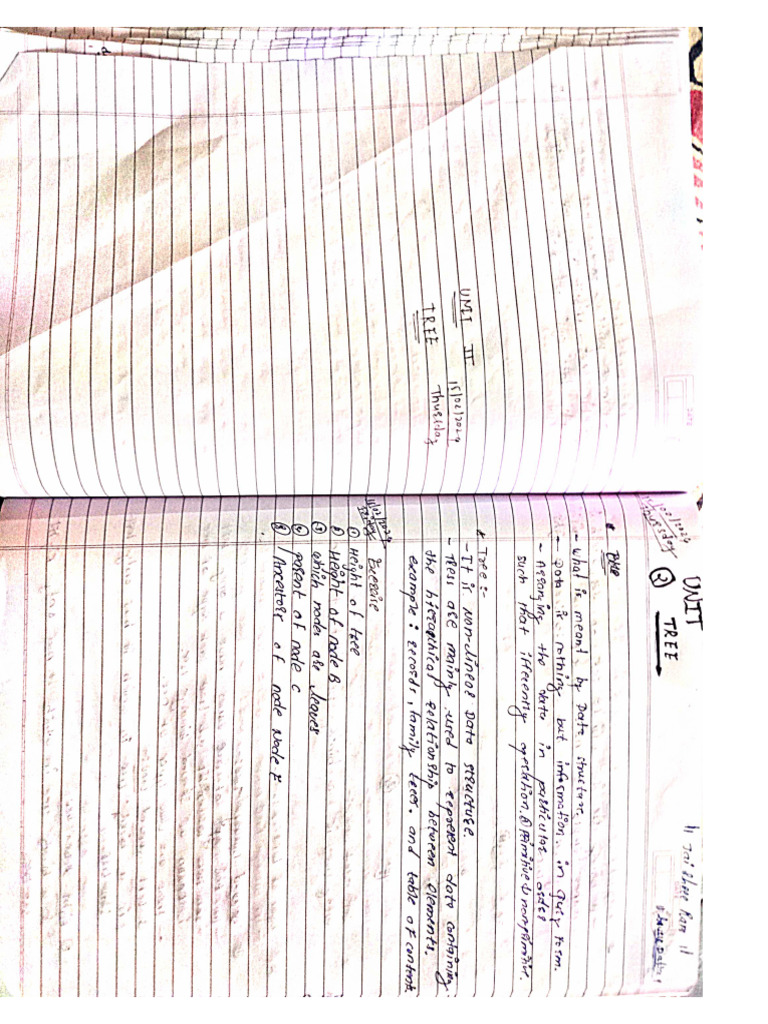 UNIT II 15/02/2024
TREE Thursday
|| Jai Shree Ram ||
UNIT
② TREE
15/02/2024
Thursday
- what is meant by Data structure.
- Data is nothing but information. in
- Arranging the data in particular order
such that operation.
* Tree :-
- It is Non-linear Data structure.
- Trees are mainly used to represent data containing
the relationship between elements.
example : records, family trees. and table of contents
Exercise
① Height of tree
② Height of node B
③ which nodes are leaves
④ parent of node C
Ancestors of node Node E